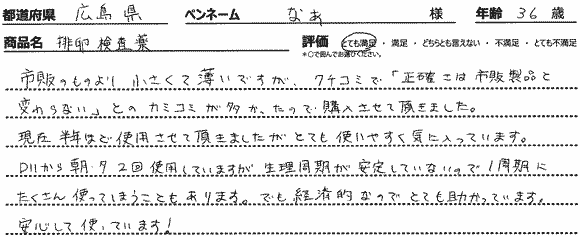 都道府県 広島県 ペンネーム なぁ 様 年齢 36 歳
商品名 排卵検査薬 評価 とても満足 ・ 満足 ・ どちらとも言えない ・ 不満足 ・ とても不満足
*○で囲んでお選びください。
市販のものより小さくて薄いですが、クチコミで「正確さは市販製品と
変わらない」とのカミコミが多かったので購入させて頂きました。
現在半年ほど使用させて頂きましたがとても使いやすく気に入っています。
D11から朝・夕2回使用していますが生理周期が安定していないので1周期に
たくさん使ってしまうこともあります。でも経済的なのでとても助かっています。
安心して使っています!